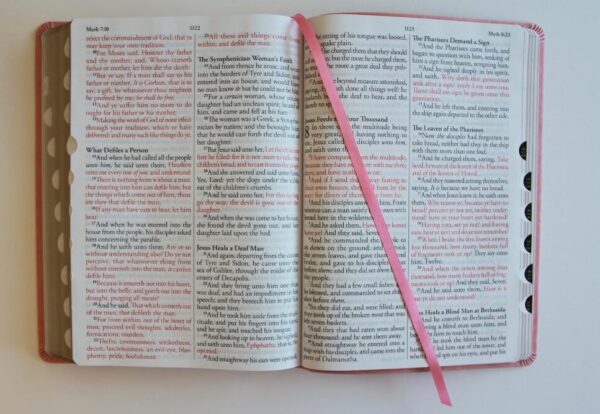 Mark 7:10
1122
reject the commandment of God, that ye
may keep your own tradition.
10For Moses said, Honour thy father
and thy mother; and, Whoso curseth
father or mother, let him die the death:
11But ye say, If a man shall say to his
father or mother, It is Corban, that is to
say, a gift, by whatsoever thou mightest
be profited by me; he shall be free.
12And ye suffer him no more to do
ought for his father or his mother;
13Making the word of God of none effect
through your tradition, which ye have
delivered: and many such like things do ye.
What Defiles a Person
14And when he had called all the people
unto him, he said unto them, Hearken
unto me every one of you, and understand:
15There is nothing from without a man,
that entering into him can defile him: but
the things which come out of him, those
are they that defile the man.
16If any man have ears to hear, let him
hear.
17And when he was entered into the
house from the people, his disciples asked
him concerning the parable.
18And he saith unto them, Are ye so
without understanding also? Do ye not
perceive, that whatsoever thing from
without entereth into the man, it cannot
defile him;
19Because it entereth not into his heart,
but into the belly, and goeth out into the
draught, purging all meats?
20And he said, That which cometh out
of the man, that defileth the man.
21For from within, out of the heart of
men, proceed evil thoughts, adulteries,
fornications, murders,
22Thefts, covetousness, wickedness,
deceit, lasciviousness, an evil eye, blas-
phemy, pride, foolishness:
23All these evil things come from
within, and defile the man.
The Syrophenician Woman's Faith
24And from thence he arose, and went
into the borders of Tyre and Sidon, and
entered into an house, and would have
no man know it: but he could not be hid.
25For a certain woman, whose young
daughter had an unclean spirit, heard of
him, and came and fell at his feet:
26The woman was a Greek, a Syrophe-
nician by nation; and she besought him
that he would cast forth the devil out of
her daughter.
27But Jesus said unto her, Let the children
first be filled: for it is not meet to take the
children's bread, and to cast it unto the dogs.
28And she answered and said unto him,
Yes, Lord: yet the dogs under the table
eat of the children's crumbs.
29And he said unto her, For this saying
go thy way; the devil is gone out of thy
daughter.
30And when she was come to her house,
she found the devil gone out, and her
daughter laid upon the bed.
Jesus Heals a Deaf Man
31And again, departing from the coasts
of Tyre and Sidon, he came unto the
sea of Galilee, through the midst of the
coasts of Decapolis.
32And they bring unto him one that
was deaf, and had an impediment in his
speech; and they beseech him to put his
hand upon him.
33And he took him aside from the multi-
tude, and put his fingers into his ears,
and he spit, and touched his tongue;
34And looking up to heaven, he sighed,
and saith unto him, Ephphatha, that is, Be
opened.
35And straightway his ears were opened,
1123
Mark 8:23
the string of his tongue was loosed,
spake plain.
charged them that they should
but the more he charged them,
the more a great deal they pub-
were beyond measure astonished,
hath done all things well: he
the deaf to hear, and the
dumb to
Jesus Feeds Four Thousand
In those the multitude being
very great, having nothing to
Jesus called his disciples unto
him, and saith unto
2I have compassion on the multitude,
because they have with me
three days, and have nothing to eat:
3And if I send them away fasting to
their own houses, they faint by the
way: for divers of them from far.
4And his disciples him, From
whence can a man satisfy with
bread here in the wilderness
5And he asked them, How many loaves
have ye? And they said, Seven.
6And he commanded the people to
sit down on the ground: and he took
the seven loaves, and gave thanks, and
brake, and gave to his disciples to set
before them; and they did set them before
the people.
7And they had a few small fishes: and
he blessed, and commanded to set them
also before them.
8So they did eat, and were filled: and
they took up of the broken meat that was
left seven baskets.
9And they that had eaten were about
four thousand: and he sent them away.
10And straightway he entered into a
ship with his disciples, and came into the
parts of Dalmanutha.
The Pharisees Demand a Sign
11And the Pharisees came forth, and
began to question with him, seeking of
him a sign from heaven, tempting him.
12And he sighed deeply in his spirit,
and saith, Why doth this generation
seek after a sign? verily I say unto you,
There shall no sign be given unto this
generation.
13And he left them, and entering into
the ship again departed to the other side.
The Leaven of the Pharisees
14Now the disciples had forgotten to
take bread, neither had they in the ship
with them more than one loaf.
15And he charged them, saying, Take
heed, beware of the leaven of the Pharisees,
and of the leaven of Herod.
16And they reasoned among themselves,
saying, It is because we have no bread.
17And when Jesus knew it, he saith unto
them, Why reason ye, because ye have no
bread? perceive ye not yet, neither under-
stand? have ye your heart yet hardened?
18Having eyes, see ye not? and having
ears, hear ye not? and do ye not remember?
19When I brake the five loaves among
five thousand, how many baskets full
of fragments took ye up? They say unto
him, Twelve.
20And when the seven among four
thousand, how many baskets full of frag-
ments took ye up? And they said, Seven.
21And he said unto them, How is it
that ye do not understand?
Jesus Heals a Blind Man at Bethsaida
22And he cometh to Bethsaida; and
they bring a blind man unto him, and
besought him to touch him.
23And he took the blind man by the
hand, and led him out of the town; and
when he had spit on his eyes, and put his